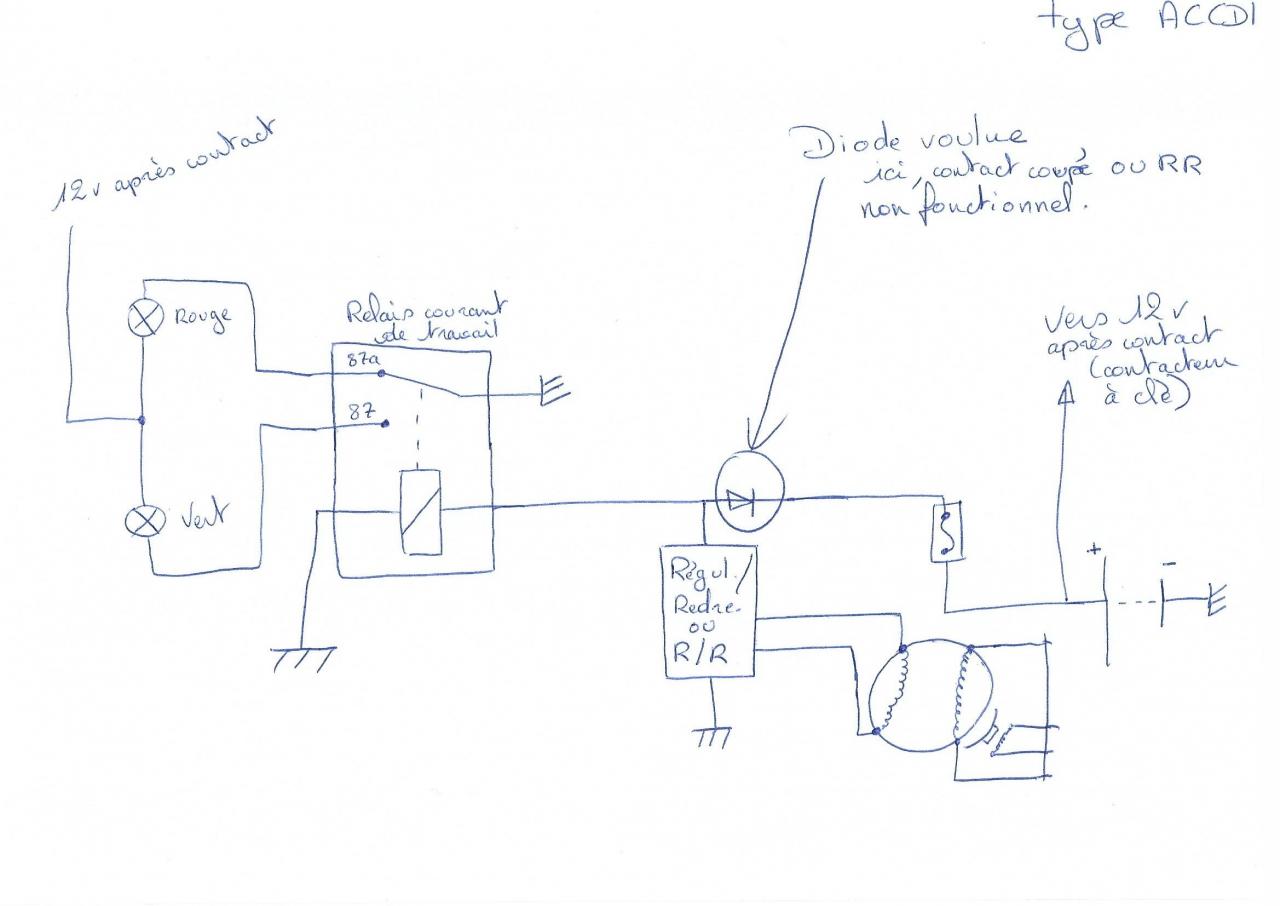 type ACCDI
12v après contact
Diode voulue
ici, contact coupé ou RR
non fonctionnel.
Rouge
Relais courant
de travail
87a
87
Vert
Vers 12 v
après contact
(contacteur
à clè)
+
-
Règul./
Redre.
ou
R/R